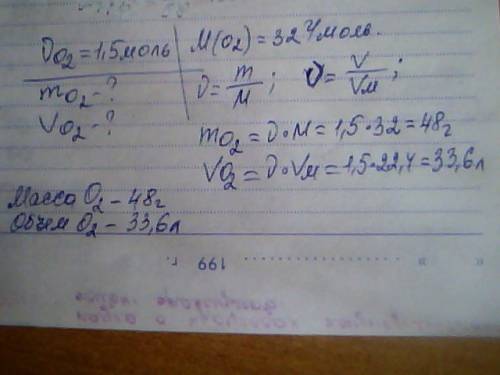 νO₂ = 1,5 моль
mO₂ - ?
VO₂ - ?
M(O₂) = 32 г/моль.
ν = m/M; ν = V/Vм;
mO₂ = ν • M = 1,5 • 32 = 48 г
VO₂ = ν • Vм = 1,5 • 22,4 = 33,6 л
Масса O₂ – 48 г
Объем O₂ – 33,6 л
" " 199 г.